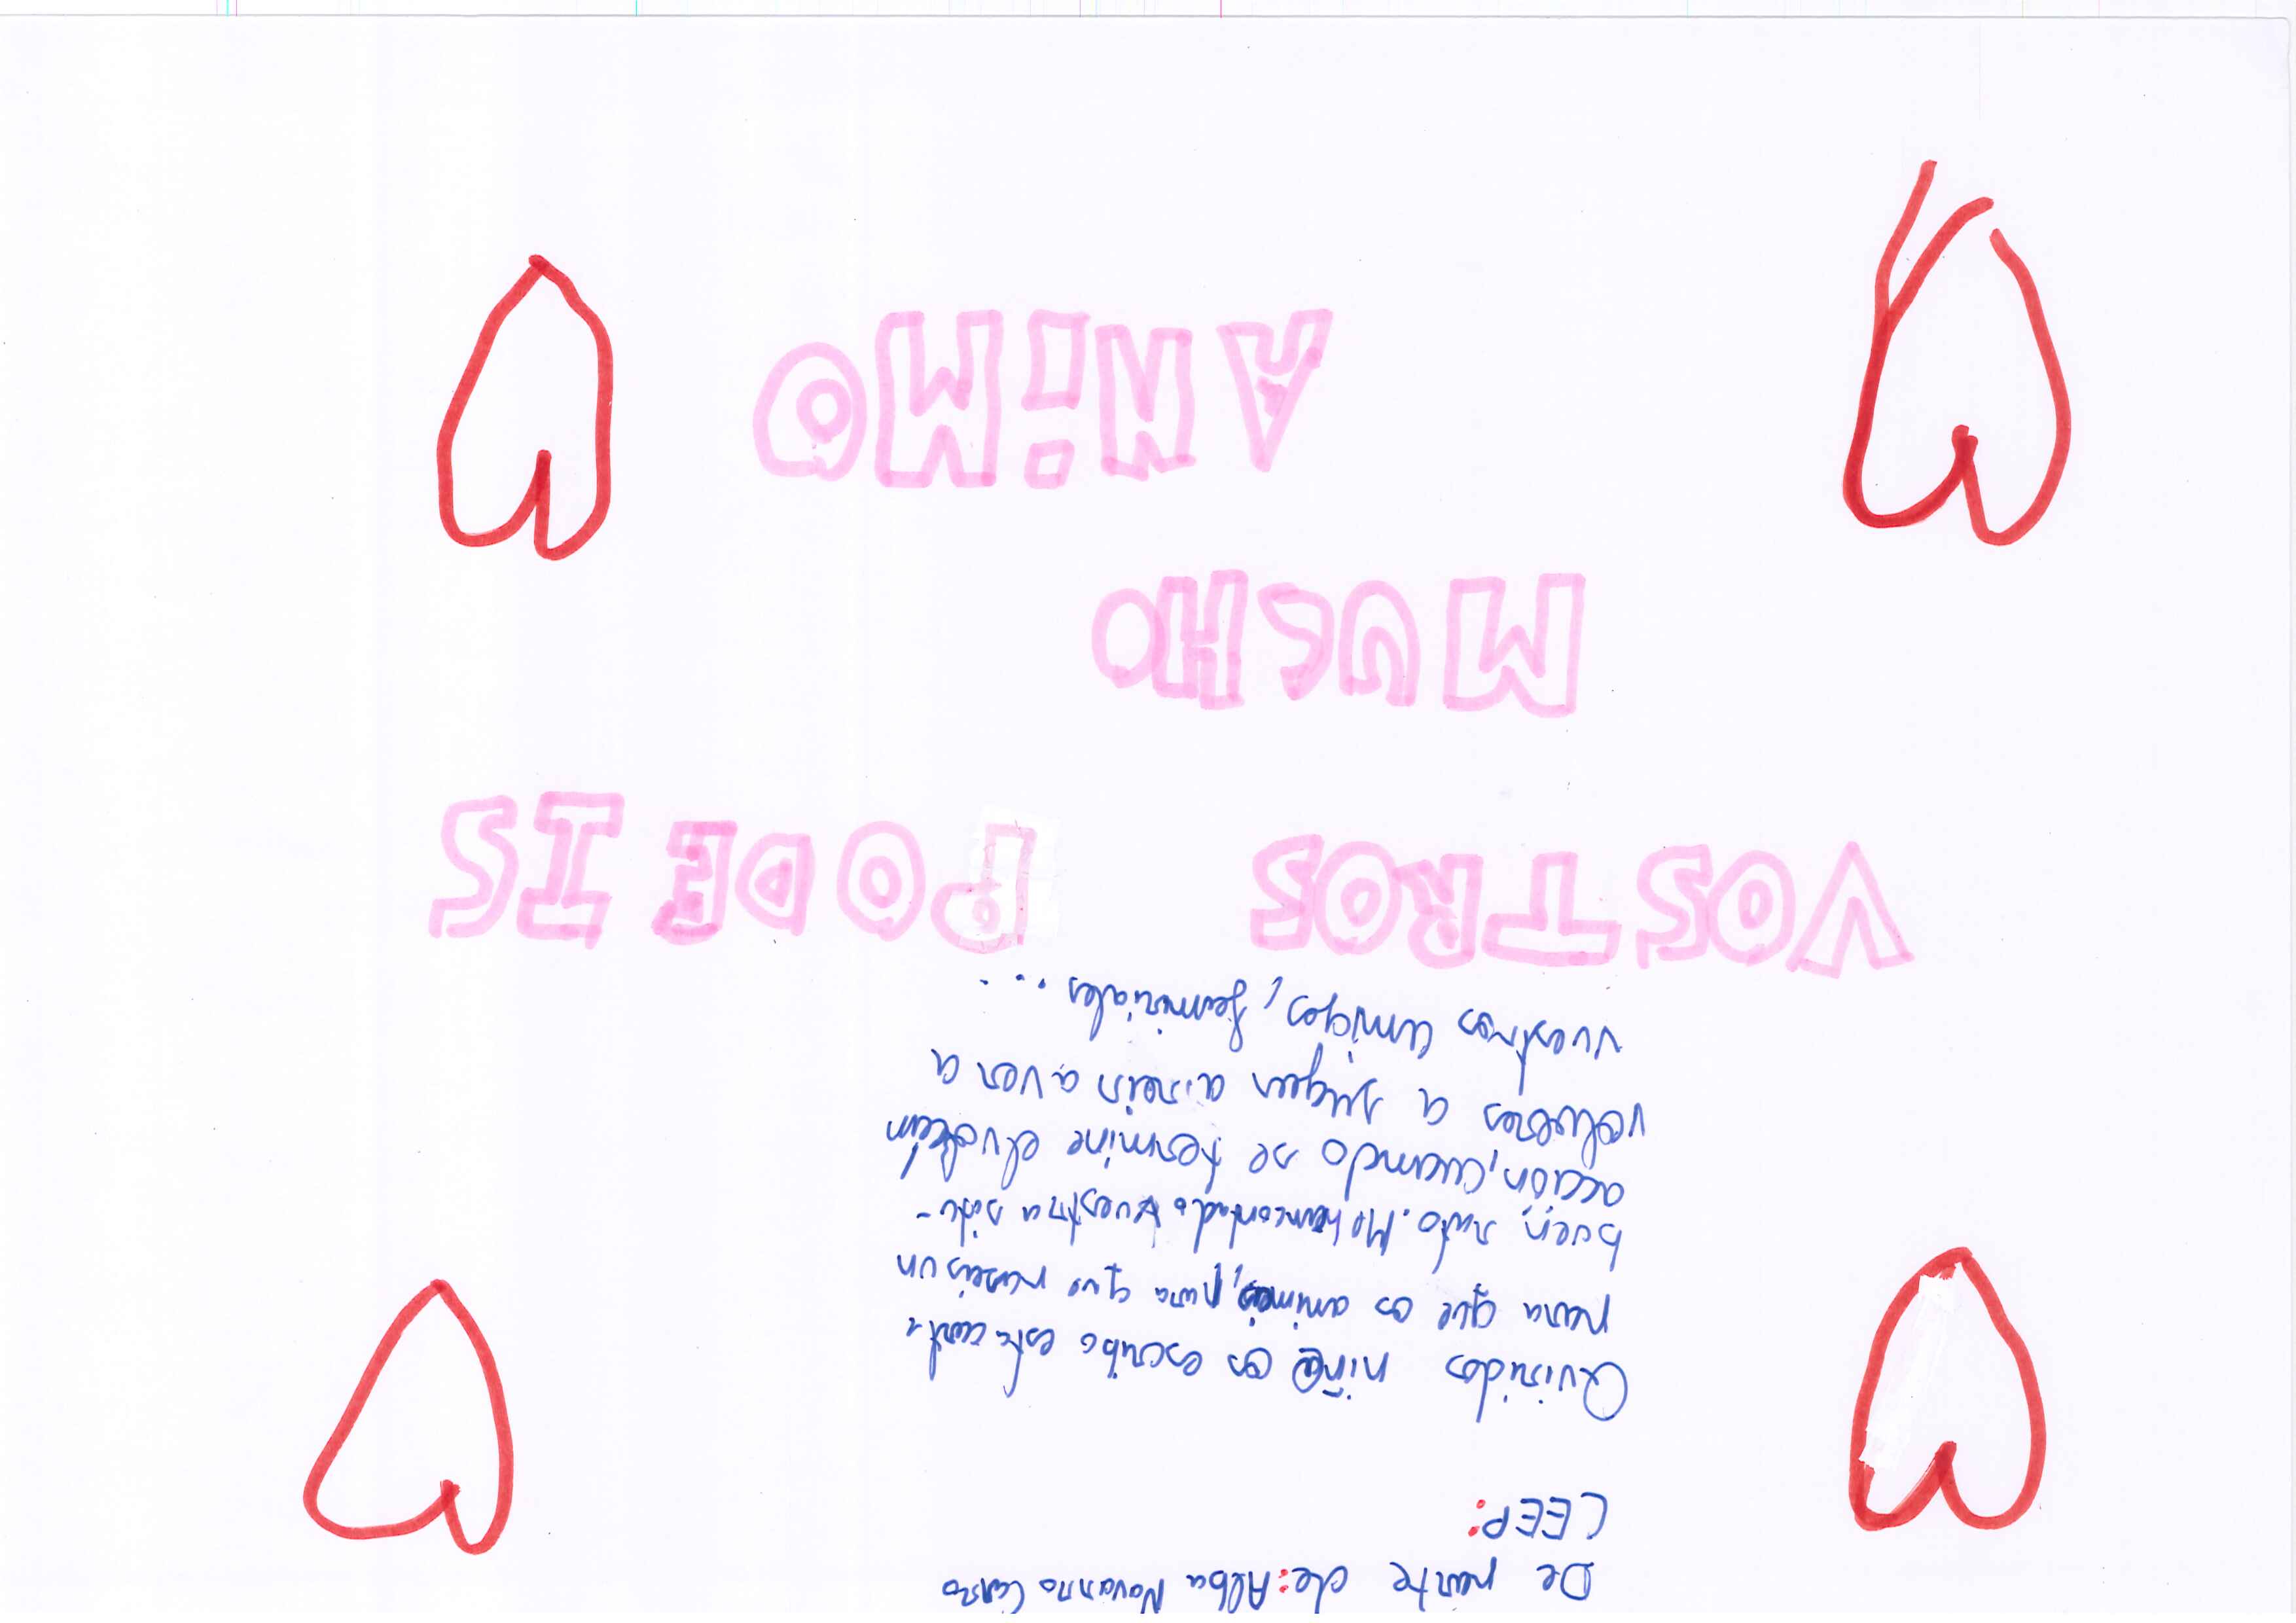 De parte de: Alba Navarro Carro
CEEP:
Quiridos niñ@ os escribo esta carta
para que os animeis, para que paseis un
buen rato. Me han contado vuestra situ-
acción, cuando se termine elvolcan
volveres a jugar a reir a ver a
vuestros amigos, familiales ....
VOSTROS PODEIS
MUSHO
ANIMO